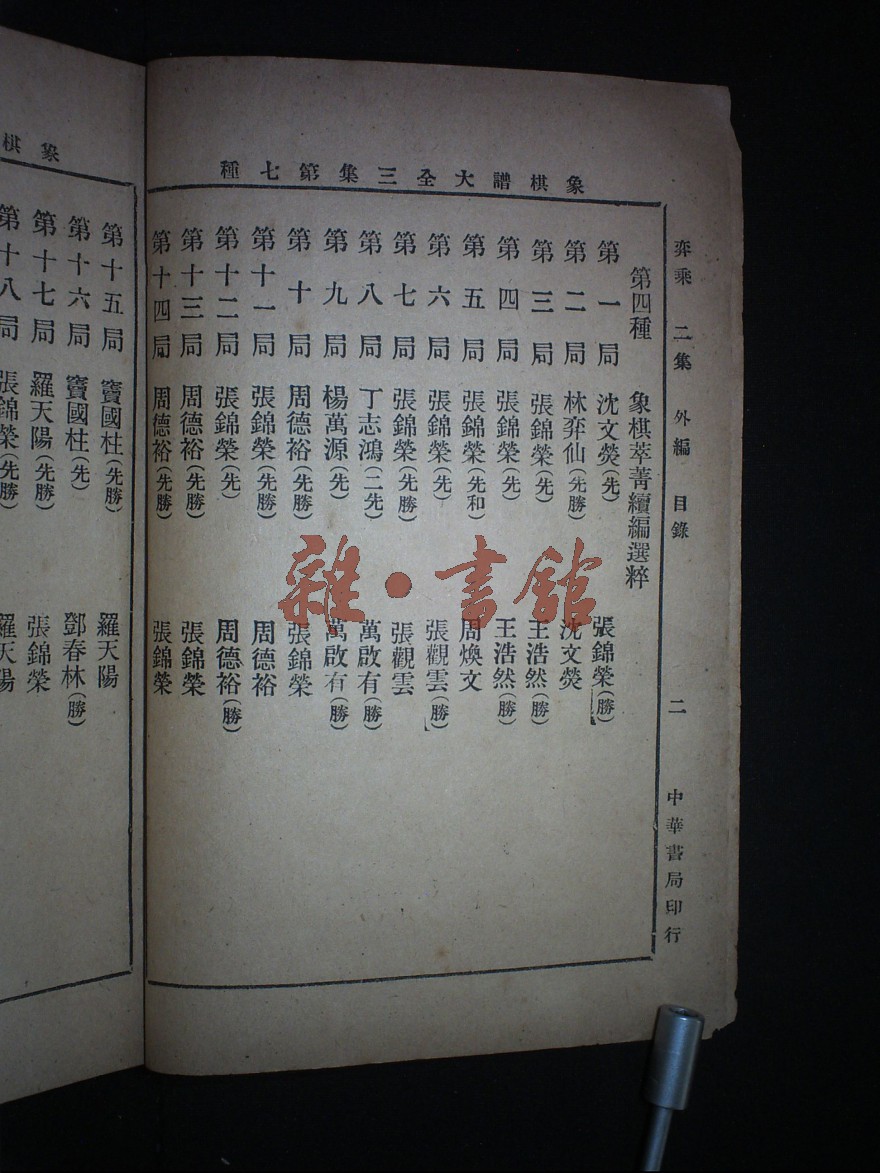 象棋譜大全三集第七種
弈乘 二集 外編 目錄 二 中華書局印行
第四種 象棋萃菁續編選粹
第一局 沈文熒(先) 張錦榮(勝)
第二局 林弈仙(先勝) 沈文熒
第三局 張錦榮(先) 王浩然(勝)
第四局 張錦榮(先) 王浩然(勝)
第五局 張錦榮(先和) 周煥文
第六局 張錦榮(先) 張觀雲(勝)
第七局 張錦榮(先勝) 張觀雲
第八局 丁志鴻(二先) 萬啟有(勝)
第九局 楊萬源(先) 萬啟有(勝)
第十局 周德裕(先勝) 張錦榮
第十一局 張錦榮(先勝) 周德裕
第十二局 張錦榮(先) 周德裕(勝)
第十三局 周德裕(先勝) 張錦榮
第十四局 周德裕(先勝) 張錦榮
象棋
第十五局 竇國柱(先勝) 羅天陽
第十六局 竇國柱(先) 鄧春林(勝)
第十七局 羅天陽(先勝) 張錦榮
第十八局 張錦榮(先勝) 羅天陽
雜·書館